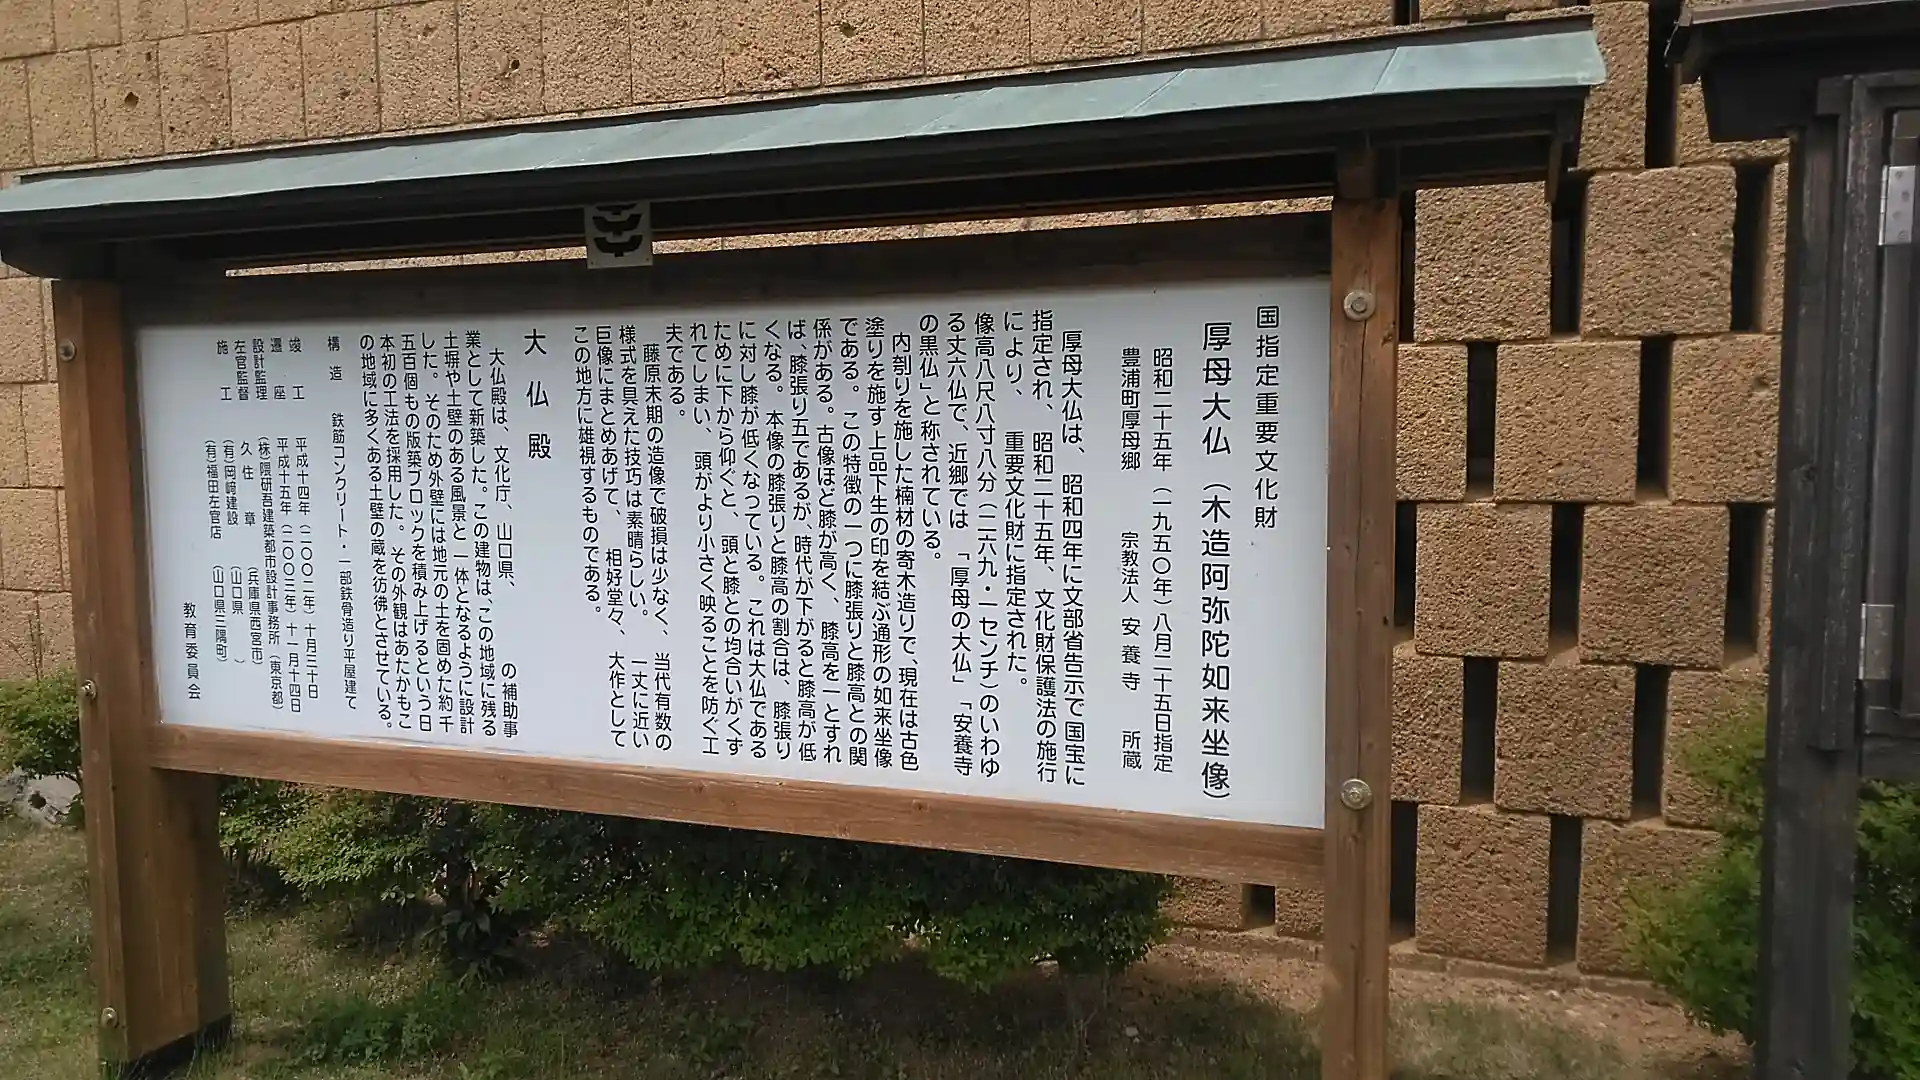 国指定重要文化財
厚母大仏（木造阿弥陀如来坐像）
昭和二十五年（一九五〇年）八月二十五日指定
豊浦町厚母郷　宗教法人　安養寺　所蔵
厚母大仏は、昭和四年に文部省告示で国宝に
指定され、昭和二十五年、文化財保護法の施行
により、重要文化財に指定された。
像高八尺八寸八分（二六九・一センチ）のいわゆ
る丈六仏で、近郷では「厚母の大仏」「安養寺
の黒仏」と称されている。
内刳りを施した楠材の寄木造りで、現在は古色
塗りを施す上品下生の印を結ぶ通形の如来坐像
である。この特徴の一つに膝張りと膝高との関
係がある。古像ほど膝が高く、膝高を一とすれ
ば、膝張り五であるが、時代が下がると膝高が低
くなる。本像の膝張りと膝高の割合は、膝張り
に対し膝が低くなっている。これは大仏である
ために下から仰ぐと、頭と膝との均合いがくず
れてしまい、頭がより小さく映ることを防ぐ工
夫である。
藤原末期の造像で破損は少なく、当代有数の
様式を具えた技巧は素晴らしい。一丈に近い
巨像にまとめあげて、相好堂々、大作として
この地方に雄視するものである。
大仏殿
大仏殿は、文化庁、山口県、　の補助事
業として新築した。この建物は、この地域に残る
土塀や土壁のある風景と一体となるように設計
した。そのため外壁には地元の土を固めた約千
五百個もの版築ブロックを積み上げるという日
本初の工法を採用した。その外観はあたかもこ
の地域に多くある土壁の蔵を彷彿とさせている。
構造　鉄筋コンクリート・一部鉄骨造り平屋建て
竣工　平成十四年（二〇〇二年）十月三十日
遷座　平成十五年（二〇〇三年）十一月十四日
設計監理　(株)隈研吾建築都市設計事務所（東京都）
左官監督　久住　章　（兵庫県西宮市）
施工　(有)岡﨑建設　（山口県　）
(有)福田左官店　（山口県三隅町）
教育委員会